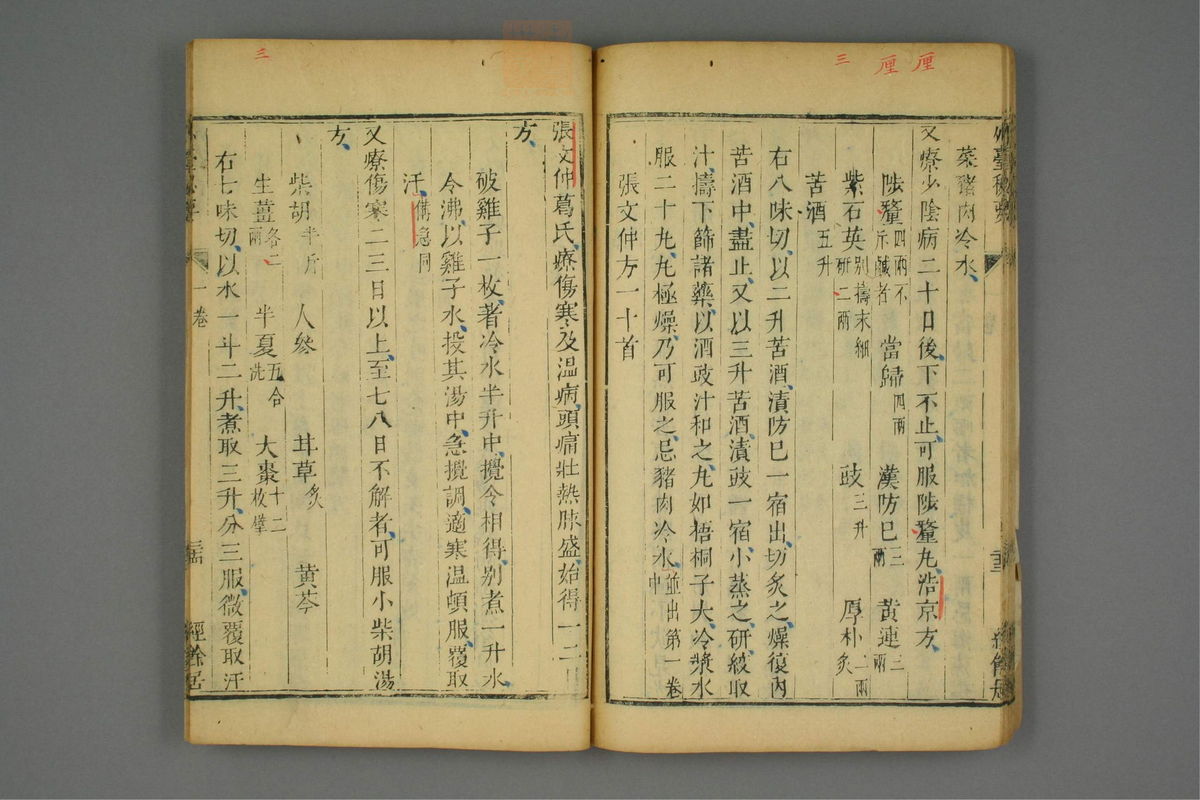 厘
厘
三
外臺秘要
菜豬肉冷水
又療少陰病二十日後下不止可服陟釐丸浩京方
陟釐四兩不斤鹹者 當歸四兩 漢防巳三兩 黃連三兩
紫石英别擣末細研二兩 豉三升 厚朴二兩炙
苦酒五升
右八味切以二升苦酒漬防巳一宿出切炙之燥復內
苦酒中盡止又以三升苦酒漬豉一宿小蒸之研絞取
汁擣下篩諸藥以酒豉汁和之丸如梧桐子大冷漿水
服二十丸丸極燥乃可服之忌豬肉冷水並出第一卷中
張文仲方一十首
三
張文仲葛氏療傷寒及温病頭痛壯熱脉盛始得一二日
方
破雞子一枚著冷水半升中攪令相得别煮一升水
令沸以雞子水投其湯中急攪調適寒温頓服覆取
汗備急同
又療傷寒二三日以上至七八日不解者可服小柴胡湯
方
柴胡半斤 人參 甘草炙 黄芩
生薑各二兩 半夏五合洗 大棗十二枚擘
右七味切以水一斗二升煮取三升分三服微覆取汗
一卷
經餘居